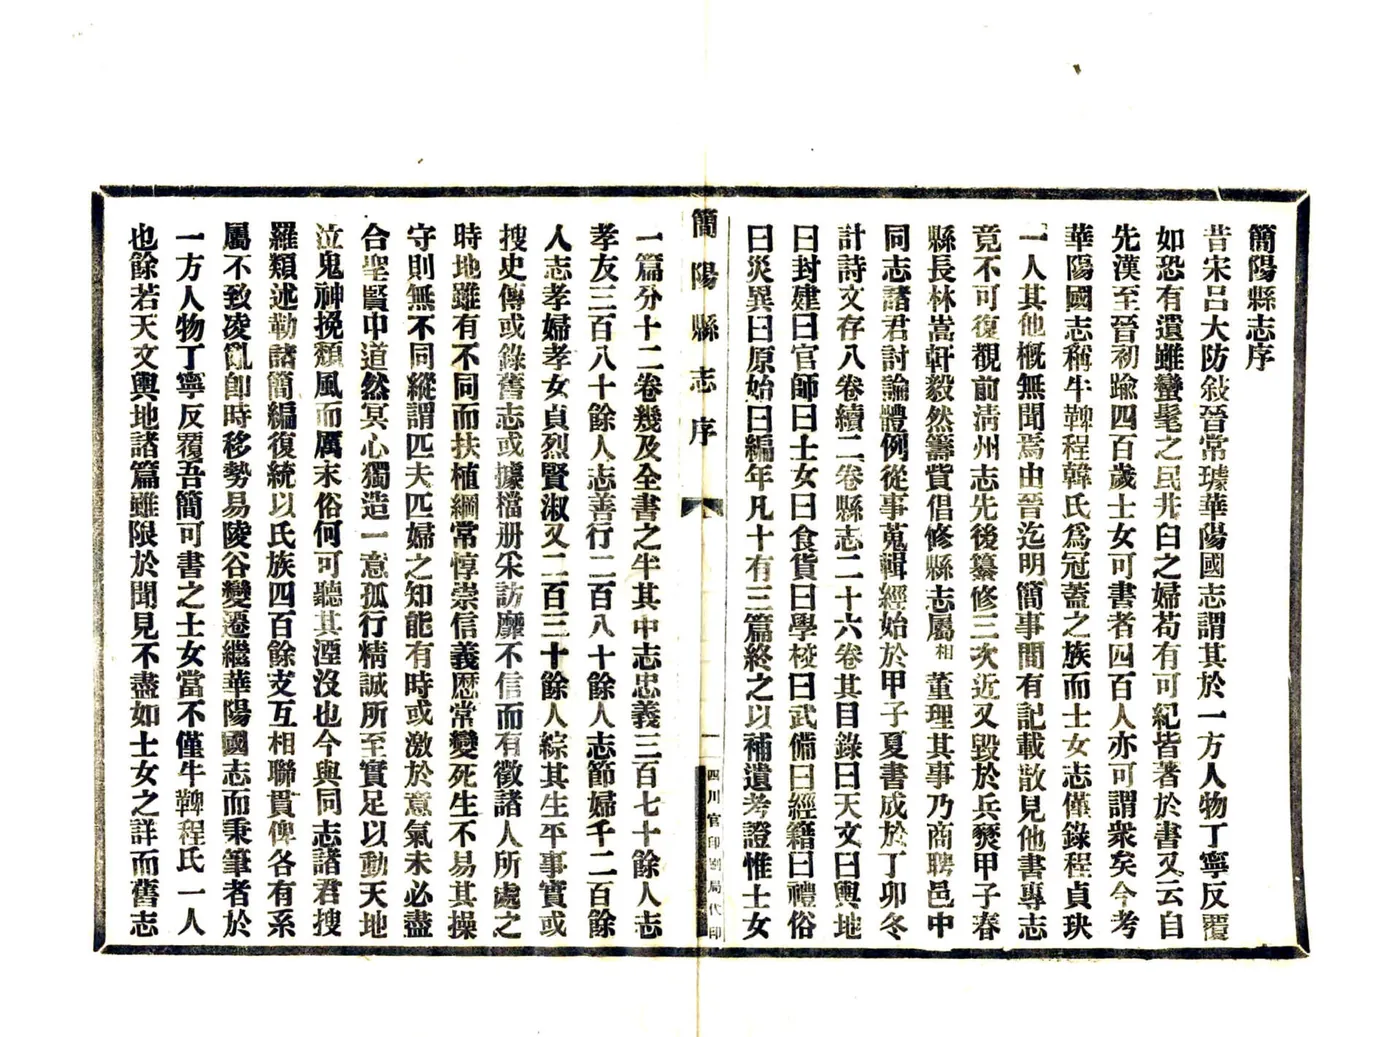 簡陽縣志序
昔宋呂大防敍晉常璩華陽國志謂其於一方人物丁寧反覆
如恐有遺雖蠻髦之民井臼之婦苟有可紀皆著於書又云自
先漢至晉初踰四百歲士女可書者四百人亦可謂衆矣今考
華陽國志稱牛鞞程韓氏爲冠蓋之族而士女志僅錄程貞玦
一人其他概無聞焉由晉迄明簡事間有記載散見他書專志
竟不可復覩前淸州志先後纂修三次近又毀於兵燹甲子春
縣長林嵩軒毅然籌貲倡修縣志屬相董理其事乃商聘邑中
同志諸君討論體例從事蒐輯經始於甲子夏書成於丁卯冬
計詩文存八卷續二卷縣志二十六卷其目錄曰天文曰輿地
曰封建曰官師曰士女曰食貨曰學校曰武備曰經籍曰禮俗
曰災異曰原始曰編年凡十有三篇終之以補遺考證惟士女
簡陽縣志序
一
四川官印刷局代印
一篇分十二卷幾及全書之半其中志忠義三百七十餘人志
孝友三百八十餘人志善行二百八十餘人志節婦千二百餘
人志孝婦孝女貞烈賢淑又二百三十餘人綜其生平事實或
搜史傳或錄舊志或據檔册采訪靡不信而有徵諸人所處之
時地雖有不同而扶植綱常惇崇信義歷常變死生不易其操
守則無不同縱謂匹夫匹婦之知能有時或激於意氣未必盡
合聖賢中道然冥心獨造一意孤行精誠所至實足以動天地
泣鬼神挽頹風而厲末俗何可聽其湮沒也今與同志諸君搜
羅類述勒諸簡編復統以氏族四百餘支互相聯貫俾各有系
屬不致凌亂卽時移勢易陵谷變遷繼華陽國志而秉筆者於
一方人物丁寧反覆吾簡可書之士女當不僅牛鞞程氏一人
也餘若天文輿地諸篇雖限於聞見不盡如士女之詳而舊志